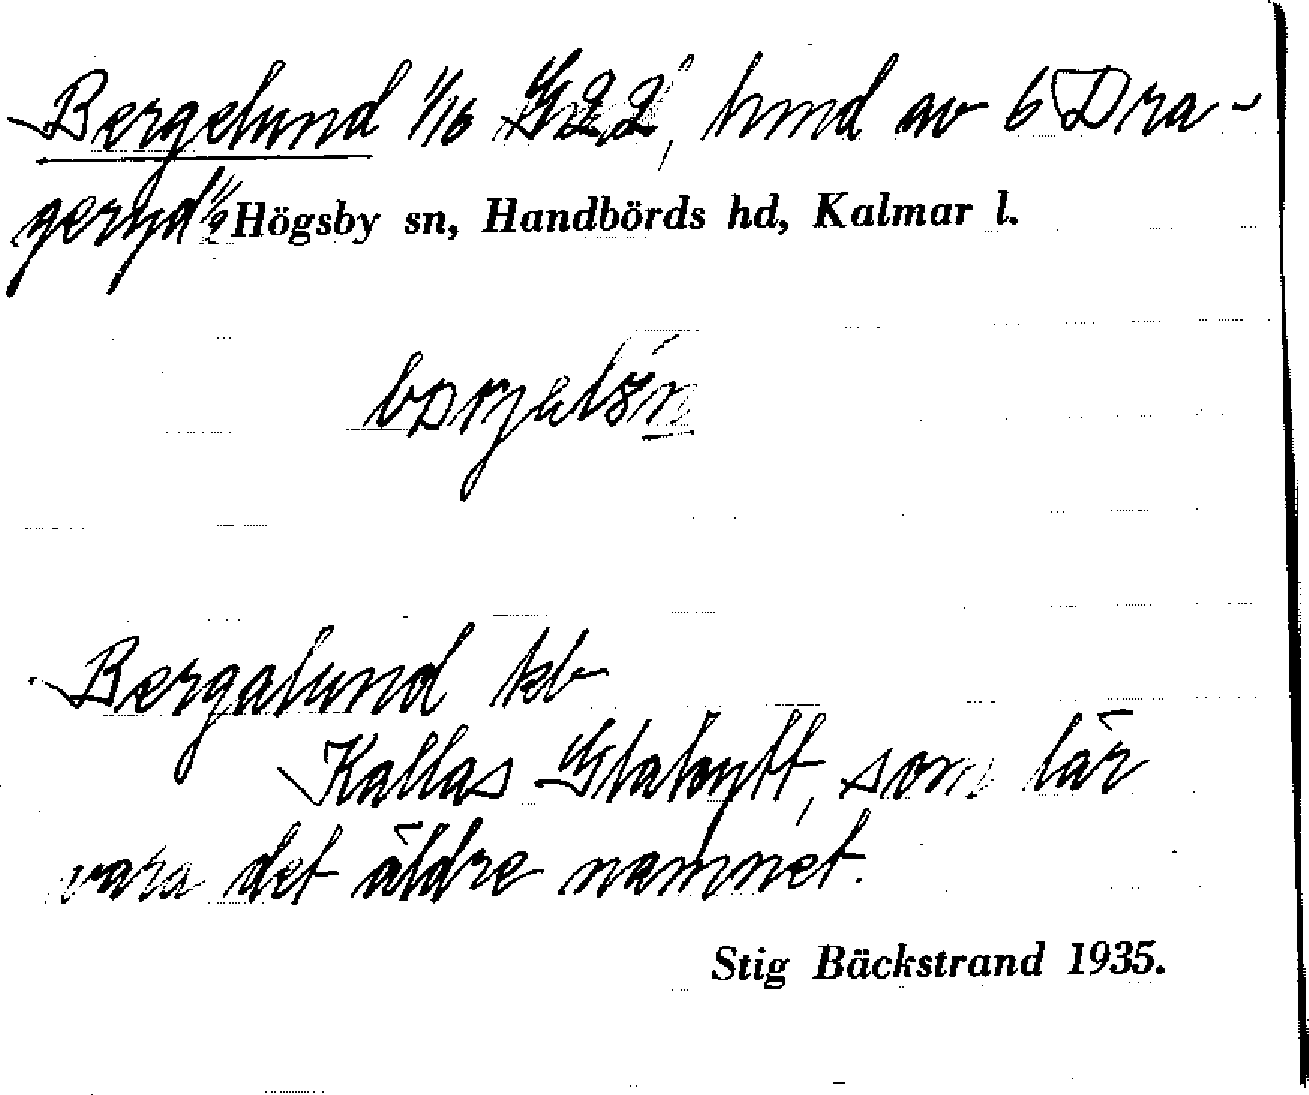 Bergelund 1/16 hmd av 6 Dra-
geryd 1/2 Högsby sn, Handbörds hd, Kalmar l.
Bergalund kb
Kallas som lär
vara det äldre namnet.
Stig Bäckstrand 1935.